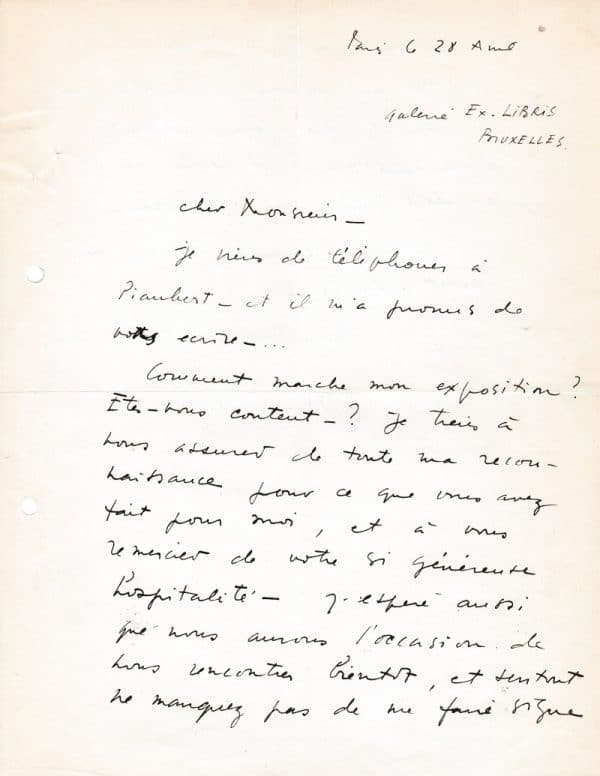 Paris le 28 Avril
Galerie Ex-LIBRIS
BRUXELLES.
cher Monsieur –
je viens de téléphoner à
Piaubert – et il m'a promis de
vous ecrire – ...
Comment marche mon exposition ?
Etes-vous content – ? Je tiens à
vous assurer de toute ma recon-
naissance pour ce que vous avez
fait pour moi, et à vous
remercier de votre si généreuse
hospitalité – J'espère aussi
que nous aurons l'occasion de
nous rencontrer bientôt, et surtout
ne manquez pas de me faire signe